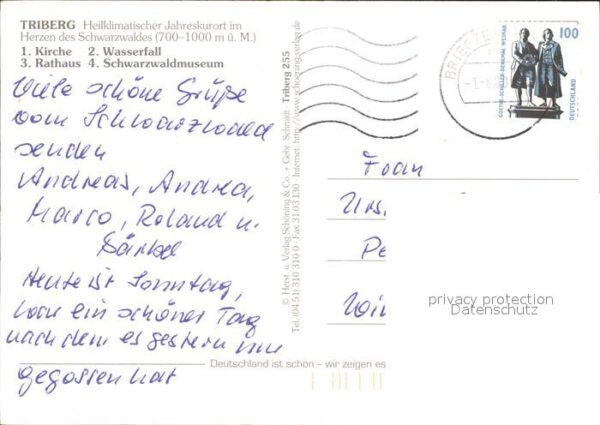 TRIBERG Heilklimatischer Jahreskurort im
Herzen des Schwarzwaldes (700–1000 m ü. M.)
1. Kirche 2. Wasserfall
3. Rathaus 4. Schwarzwaldmuseum
Viele schöne Grüße
vom Schwarzwald
senden
Andreas, Andrea,
Marco, Roland u.
Bärbel
Heute ist Sonntag,
ein schöner Tag
nach dem es gestern nur
gegossen hat
© Herst. u. Verlag Schöning & Co. + Gebr. Schmidt Triberg 255
Tel. (04 51) 310 310 0 · Fax 31 03 130 · Internet: http://www.schoening-verlag.de
Deutschland ist schön – wir zeigen es
BRIEFZE
100
DEUTSCHLAND
GOETHE-SCHILLER-DENKMAL WEIMAR
Frau
Urs.
Pe
privacy protection
Datenschutz